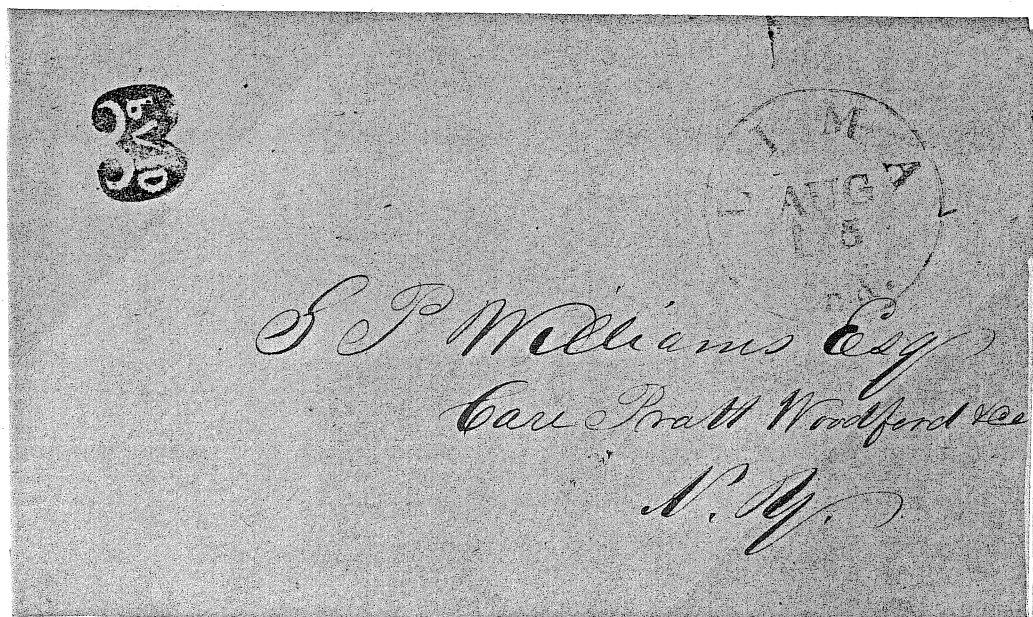 3
PAID
LIMA
AUG
18
S P Williams Esq
Care Pratt Woodford & Co
N. Y.